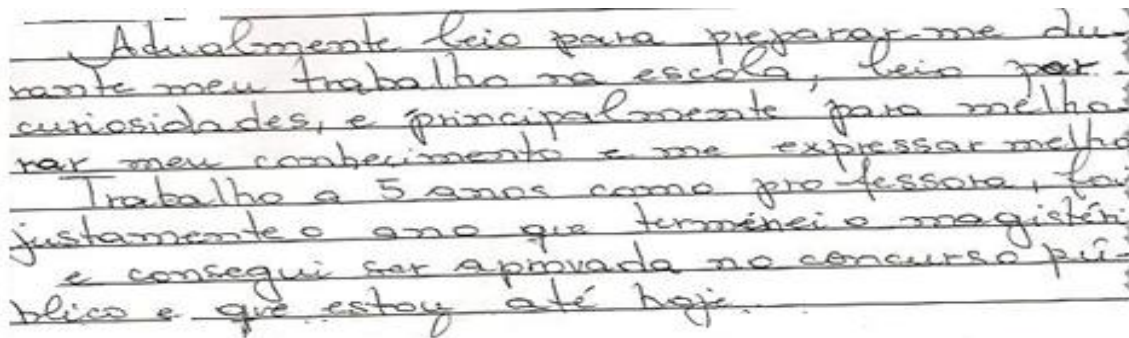 Adualmente leio para preparar-me du-
rante meu trabalho na escola, leio por
curiosidades, e principalmente para melho-
rar meu conhecimento e me expressar melho
Trabalho a 5 anos como professora, foi
justamente o ano que terminei o magistéri
e consegui ser aprovada no concurso pú-
blico e que estou até hoje.